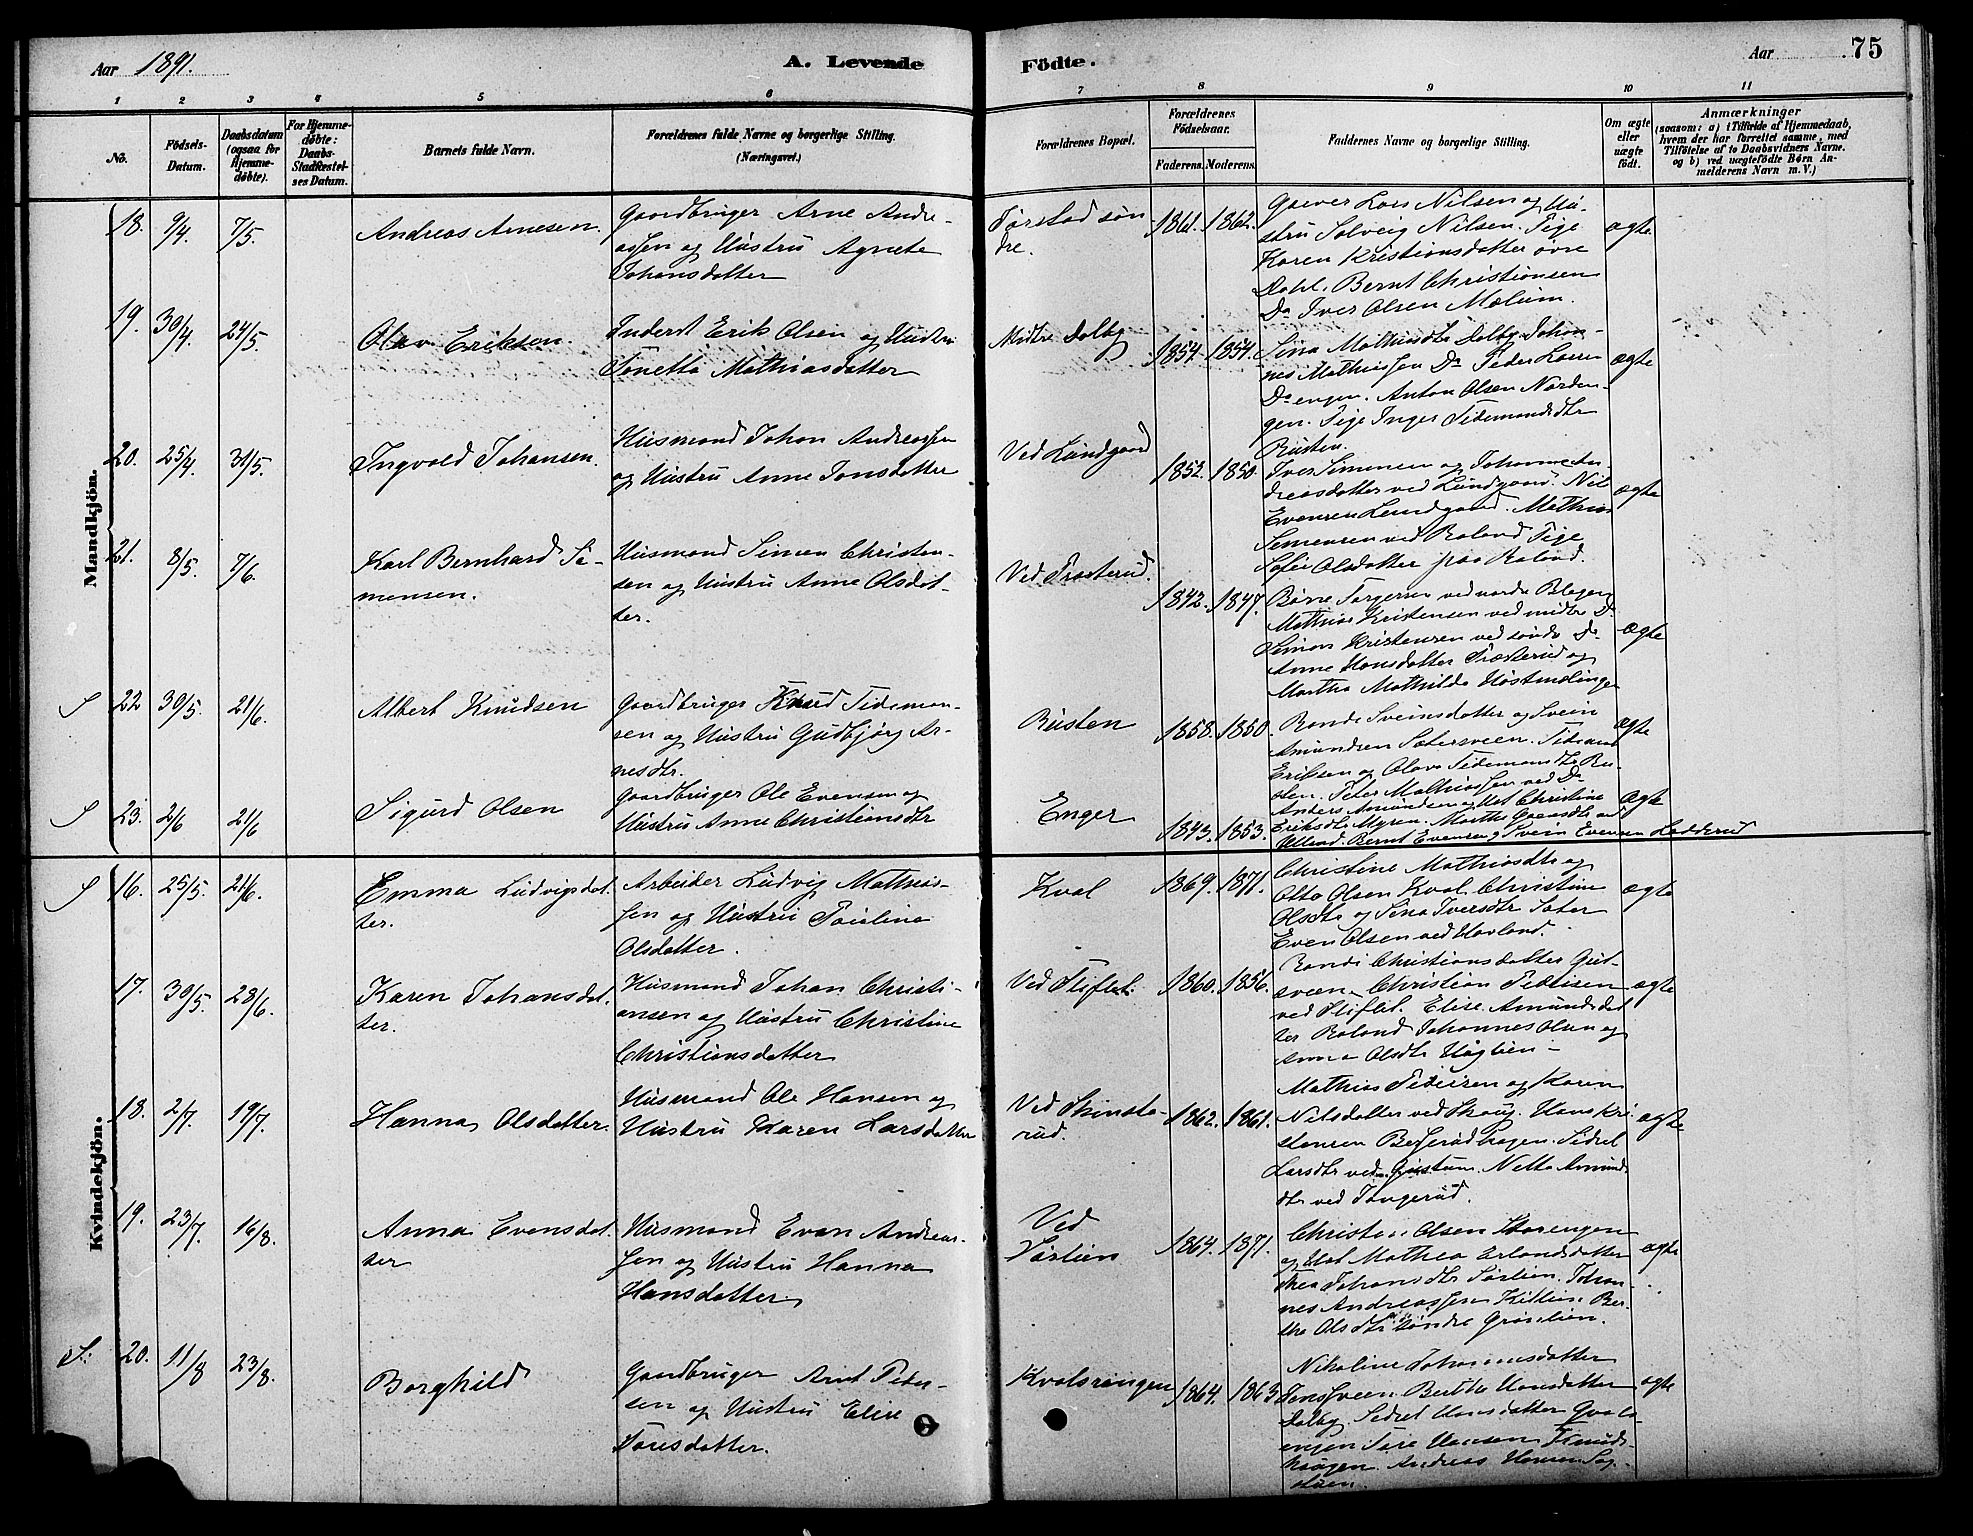 Aar 1891.
A. Levende
Födte.
Aar
75
1 2 3 4 5 6 7 8 9 10 11
No.
Födsels-Datum.
Daabsdatum (ogsaa for Hjemme-døbte).
For Hjemme-døbte: Daabs-Stadfæstel-ses Datum.
Barnets fulde Navn.
Forældrenes fulde Navne og borgerlige Stilling. (Næringsvei.)
Forældrenes Bopæl.
Forældrenes Födselsaar.
Faderens. Moderens.
Faddernes Navne og borgerlige Stilling.
Om ægte eller uægte født.
Anmærkninger
(saasom: a) i Tilfælde af Hjemmedaab,
hvem der har forrettet samme, med
Tilföielse af to Daabsvidners Navne.
og b) ved uægtefödte Börn An-
melderens Navn m.V.)
Mandkjön.
18. 9/4 7/5. Andreas Arnesen.
Gaardbruger Arne Andre-
assen og Hustru Agnete
Johansdatter
Tørstad søn-
dre.
1861. 1862.
Gaever Lars Nilsen og Hu-
stru Solveig Nilsen. Pige
Karen Kristiansdatter øvre
Dahl. Bernt Christiansen
Do Iver Olsen Molum.
ægte
19. 30/4 24/5. Olav Eriksen.
Inderst Erik Olsen og Hustru
Tonetta Mathiasdatter
Midtre Dalby
1854. 1854.
Sina Mathiasdtr Dalby. Johan-
nes Mathiassen Do Peder Larsen
Do engen. Anton Olsen Norden-
gen. Pige Inger Tidemandsdtr
Rusten.
ægte
20. 25/4 31/5. Ingvald Johansen.
Husmand Johan Andreassen
og Hustru Anne Jonsdatter
Ved Lundgaard
1852. 1850.
Iver Simensen og Johanne An-
dreasdatter ved Lundgaard. Nils
Evensen Lundgaard. Mathias
Simensen ved Roland. Pige
Sofie Olsdatter paa Roland.
ægte
21. 8/5. 7/6. Karl Bernhard Si-
mensen.
Husmand Simen Christen-
sen og Hustru Anne Olsdat-
ter.
Ved Prosterud.
1842. 1847.
Mathias Kristensen ved midtre Do
Simon Kristensen ved søndre Do
Anne Hansdatter Prosterud og
Martha Mathilde
ægte
S 22 30/5. 21/6. Albert Knudsen
Gaardbruger Knud Tideman-
sen og Hustru Gudbjørg Ar-
nesdtr.
Rusten
1858. 1860.
Rande Sveinsdatter og Svein
Amundsen Sætersveen. Tideman
Eriksen og Olava Tidemansdtr Ru-
sten. Peter Mathiassen ved Do
ægte
S 23. 2/6 21/6 Sigurd Olsen
Gaardbruger Ole Evensen og
Hustru Anne Christiansdtr
Enger
1843. 1853.
Anders Amundsen og Hst Christine
Eriksdtr Myren. Marthe
Bernt Evensen og Svein Evensen Ladderud
ægte
Kvindekjön.
S 16. 25/5. 21/6. Emma Ludvigsdat-
ter.
Arbeider Ludvig Mathias-
sen og Hustru Pauline
Olsdatter.
Kval
1869. 1871.
Christine Mathiasdtr og
Otto Olsen Kval. Christine
Olsdtr og Sina Iversdtr Sæter
Even Olsen ved Havland.
ægte
17. 30/5. 28/6. Karen Johansdat-
ter.
Husmand Johan Christi-
ansen og Hustru Christine
Christiansdatter
Ved Fliflet.
1860. 1856.
Randi Christiansdatter Gut-
sveen. Christian
ved Fliflet. Elise Amundsdat
ter Roland Johannes Olsen og
Anne Olsdtr Haglien
ægte
18. 2/7. 19/7. Hanna Olsdatter.
Husmand Ole Hansen og
Hustru Karen Larsdatter
Ved Skinsta-
rud.
1862. 1861.
Mathias Pedersen og Karen
Nilsdatter ved Skoug. Hans Kri-
stensen Berserudhagen. Sidsel
Larsdtr ved Gustum. Netta Amunds
dtr ved Tangerud.
ægte
19. 23/7. 16/8. Anna Evensdat-
ter
Husmand Even Andreas-
sen og Hustru Hanna
Hansdatter.
Ved
Sørlien
1864. 1871.
Christen Olsen Storengen
og Hst Mathea Erlandsdatter
Thea Johansdtr Sørlien. Johan-
nes Andreassen Kittlien. Ber-
the Olsdtr søndre Grønlien.
ægte
S: 20. 11/8 23/8. Borghild
Gaardbruger Arnt Peder-
sen og Hustru Elise
Toresdatter.
Kvalsvangen
1864. 1863
Nikoline Johannesdatter
Jenssveen. Berthe Hansdatter
Dalby. Sidsel Hansdatter Qvals-
engen Tore Hansen Knuds-
haugen. Andreas Hansen Sag-
stuen.
ægte